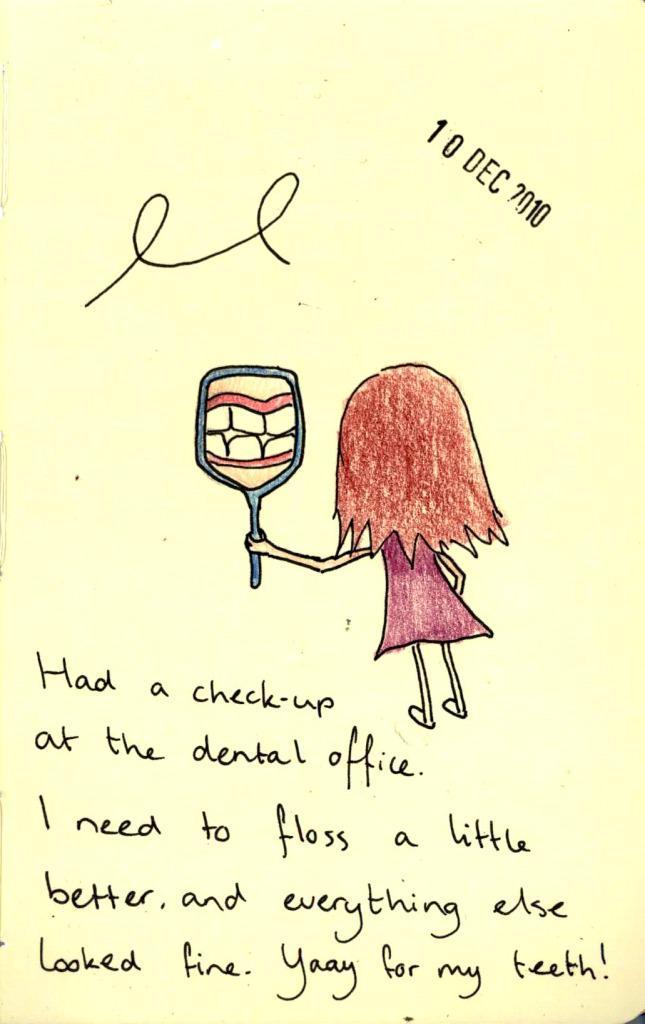 10 DEC 2010
Had a check-up
at the dental office.
I need to floss a little
better, and everything else
looked fine. Yaay for my teeth!